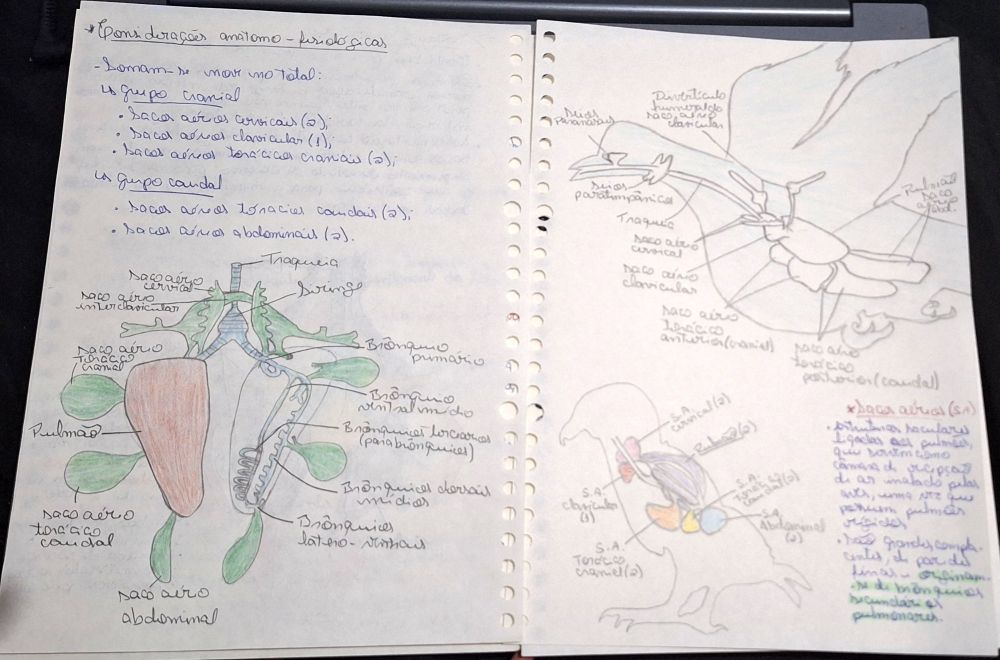 *Considerações anatomo-fisiológicas
- Somam-se nove no total:
↳ grupo cranial
• Sacos aéreos cervicais (2);
• Sacos aéreos clavicular (1);
• Sacos aéreos torácicos craniais (2);
↳ grupo caudal
• Sacos aéreos torácicos caudais (2);
• Sacos aéreos abdominais (2).
Traqueia
Saco aéreo
cervical
Siringe
Saco aéreo
interclavicular
Brônquio
primario
Saco aéreo
torácico
cranial
Brônquio
ventral médio
Pulmão
Brônquios terciários
(parabrônquios)
Brônquios dorsais
médios
Saco aéreo
torácico
caudal
Brônquios
latero-ventrais
Saco aéreo
abdominal
Seios
Paranasais
Divertículo
humeral do
saco aéreo
clavicular
Seios
paratimpânicos
Traqueia
Pulmão
Saco
aéreo
abd.
Saco aéreo
cervical
Saco aéreo
clavicular
Saco aéreo
torácico
anterior (cranial)
Saco aéreo
torácico
posterior (caudal)
S.A.
cervical (2)
Pulmão (2)
S.A.
Torácico
caudal (2)
S.A.
clavicular
(1)
S.A.
Abdominal
(2)
S.A.
Torácico
cranial (2)
*Sacos aéreos (S.A)
• estruturas saculares
ligadas aos pulmões,
que servem como
câmara de recepção
de ar inalado pelas
aves, uma vez que
possuem pulmões
rígidos
• São grandes, compla-
centes, de paredes
finas - originam-
se de brônquios
secundários
pulmonares.